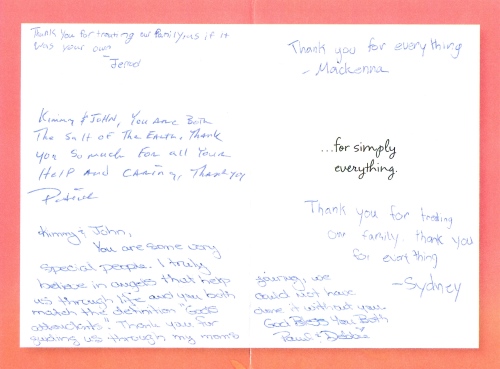 Thank you for treating our family as if it
was your own
-Jerod
Kimmy & JOHN, You are Both
The Salt of The Earth. Thank
you So much For all Your
Help AND CARING, Thank you
Patrick
Kimmy & John,
You are some very
special people. I truly
believe in angels that help
us through life and you both
match the definition "Gods
attendants". Thank you for
guiding us through my moms
Thank you for everything
- Mackenna
...for simply
everything.
Thank you for treating
our family. thank you
for everything
-Sydney
journey, we
could not have
done it without you.
God Bless You Both
& Debbie